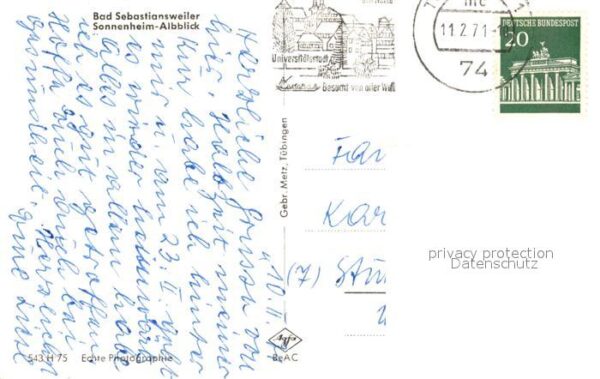 Bad Sebastiansweiler
Sonnenheim-Albblick
10.II.
Herzliche Grüsse von
hier. Halbzeit meiner
Kur habe ich hinter
mir u. am 23. II.
es wieder heimwärts
Alles in allem habe
ich es gut getroffen
Hoffe auch euch bei
Gesundheit. Herzlichst
eure
543 H 75 Echte Photographie
Gebr. Metz, Tübingen
Agfa
BeAC
Universitätsstadt
Besucht von aller Welt
11.2.71
74
DEUTSCHE BUNDESPOST
20
(7)
privacy protection
Datenschutz